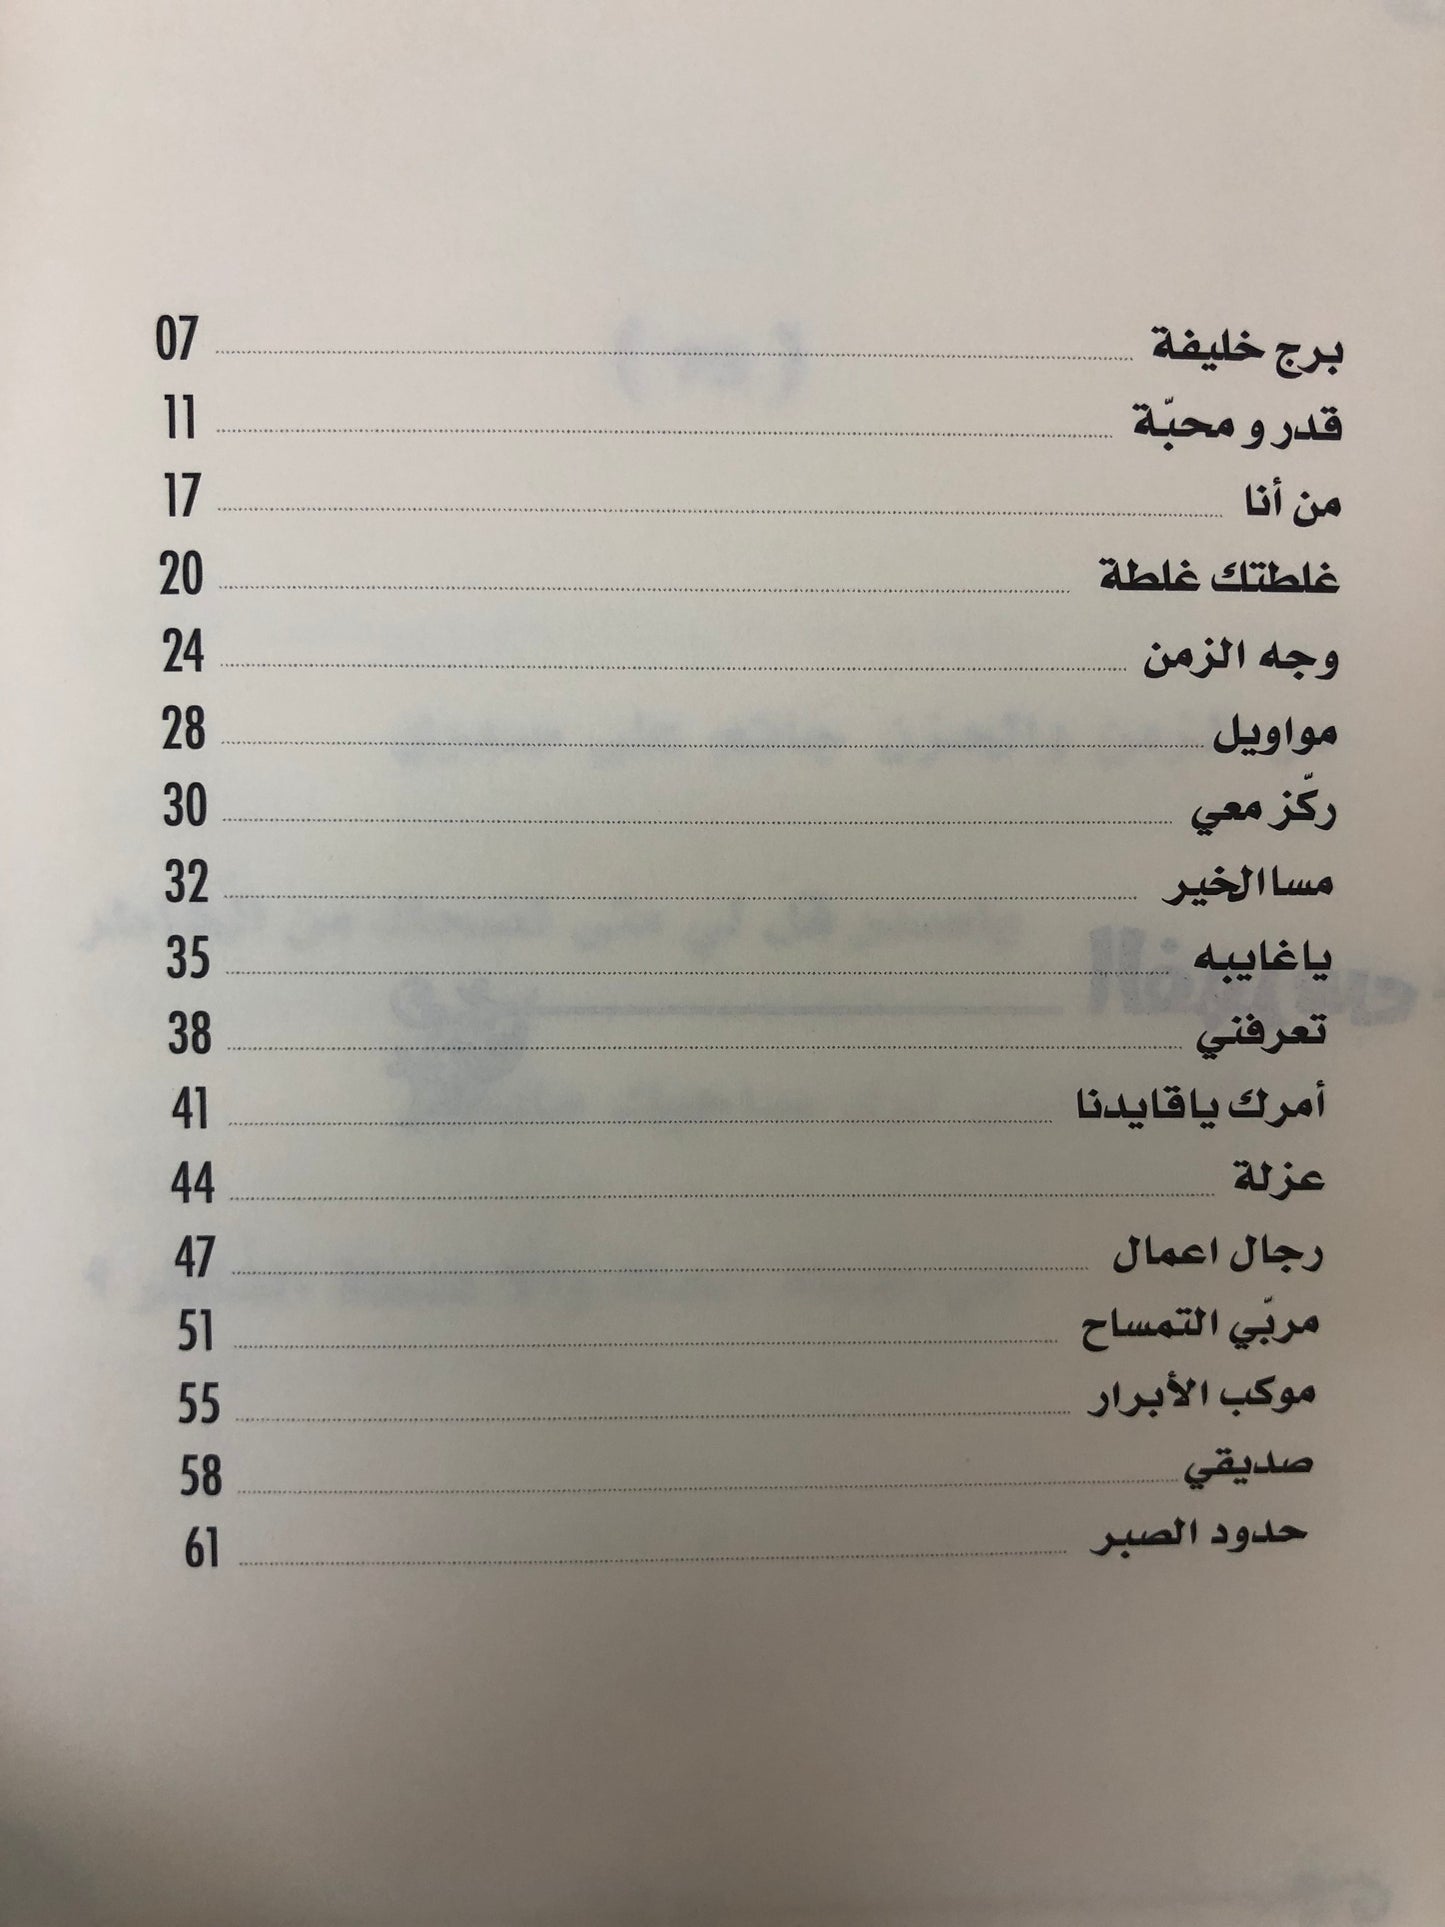 برج خليفة 07
قدر و محبّة 11
من أنا 17
غلطتك غلطة 20
وجه الزمن 24
مواويل 28
ركّز معي 30
مسا الخير 32
يا غايبه 35
تعرفني 38
أمرك يا قايدنا 41
عزلة 44
رجال اعمال 47
مربّي التمساح 51
موكب الأبرار 55
صديقي 58
حدود الصبر 61